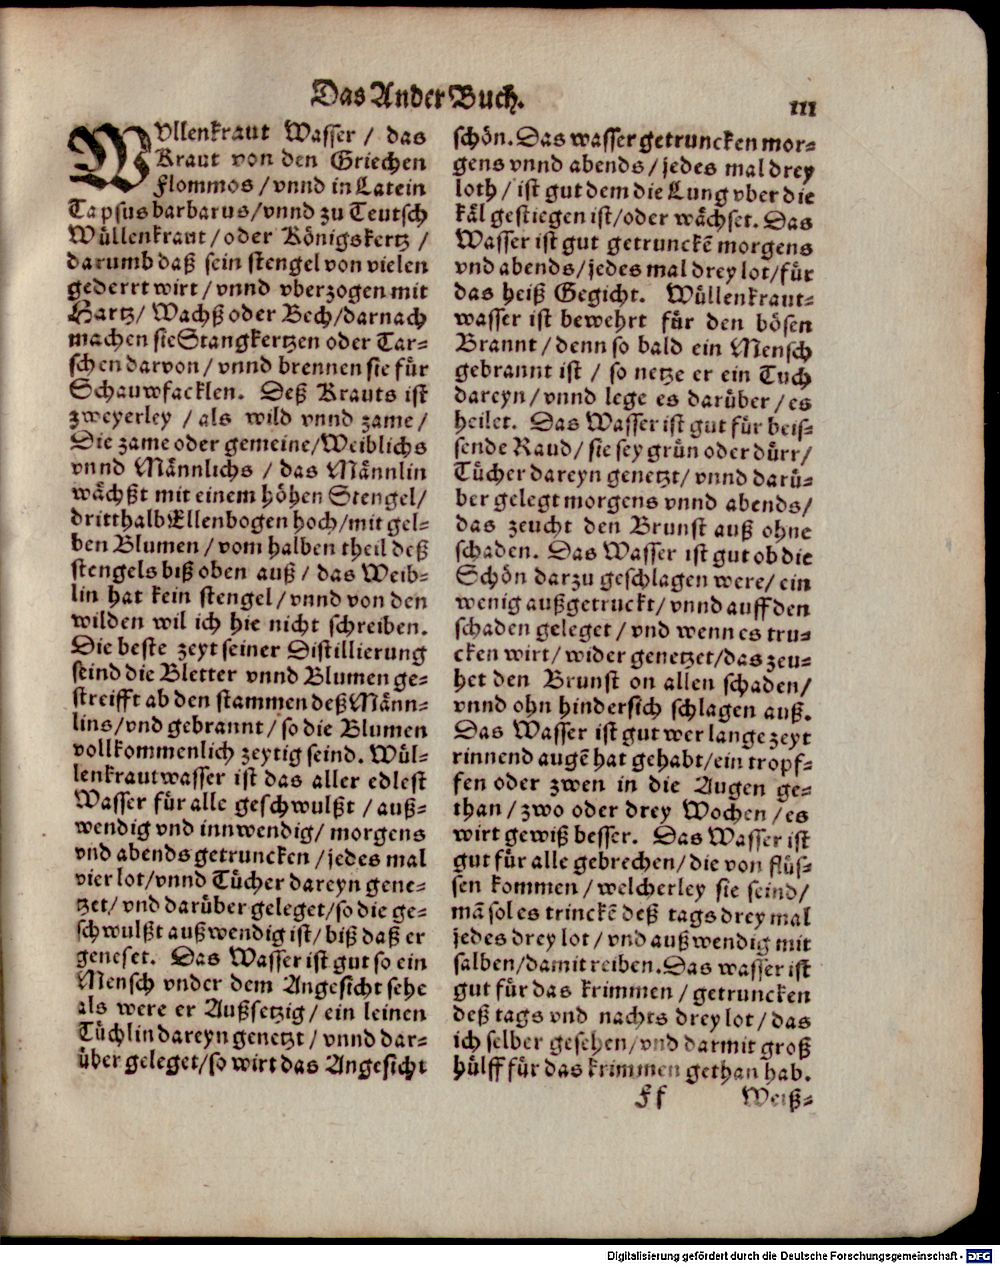 Das Ander Buch.
111
Wullenkraut Wasser / das
Kraut von den Griechen
flommos / vnnd in Latein
Tapsus barbarus / vnnd zu Teutsch
Wüllenkraut / oder Königskertz /
darumb daß sein stengel von vielen
gederrt wirt / vnnd vberzogen mit
Hartz / Wachß oder Bech / darnach
machen sie Stangkertzen oder Tar-
schen darvon / vnnd brennen sie für
Schauwfacklen. Deß Krauts ist
zweyerley / als wild vnnd zame /
Die zame oder gemeine / Weiblichs
vnnd Männlichs / das Männlin
wächßt mit einem höhen Stengel /
dritthalb Ellenbogen hoch / mit gel-
ben Blumen / vom halben theil deß
stengels biß oben auß / das Weib-
lin hat kein stengel / vnnd von den
wilden wil ich hie nicht schreiben.
Die beste zeyt seiner Distillierung
seind die Bletter vnnd Blumen ge-
streifft ab den stammen deß Männ-
lins / vnd gebrannt / so die Blumen
vollkommenlich zeytig seind. Wül-
lenkrautwasser ist das aller edlest
Wasser für alle geschwulßt / auß-
wendig vnd innwendig / morgens
vnd abends getruncken / jedes mal
vier lot / vnnd Tücher dareyn gene-
tzet / vnd darüber geleget / so die ge-
schwulßt außwendig ist / biß daß er
geneset. Das Wasser ist gut so ein
Mensch vnder dem Angesicht sehe
als were er Außsetzig / ein leinen
Tüchlin dareyn genetzt / vnnd dar-
über geleget / so wirt das Angesicht
schön. Das wasser getruncken mor-
gens vnnd abends / jedes mal drey
loth / ist gut dem die Lung vber die
käl gestiegen ist / oder wächset. Das
Wasser ist gut getrunckē morgens
vnd abends / jedes mal drey lot / für
das heiß Gegicht. Wüllenkraut-
wasser ist bewehrt für den bösen
Brannt / denn so bald ein Mensch
gebrannt ist / so netze er ein Tuch
dareyn / vnnd lege es darüber / es
heilet. Das Wasser ist gut für beis-
sende Raud / sie sey grün oder dürr /
Tücher dareyn genetzt / vnnd darü-
ber gelegt morgens vnnd abends /
das zeucht den Brunst auß ohne
schaden. Das Wasser ist gut ob die
Schön darzu geschlagen were / ein
wenig außgetruckt / vnnd auff den
schaden geleget / vnd wenn es tru-
cken wirt / wider genetzet / das zeu-
het den Brunst on allen schaden /
vnnd ohn hindersich schlagen auß.
Das Wasser ist gut wer lange zeyt
rinnend augē hat gehabt / ein tropf-
fen oder zwen in die Augen ge-
than / zwo oder drey Wochen / es
wirt gewiß besser. Das Wasser ist
gut für alle gebrechen / die von flüs-
sen kommen / welcherley sie seind /
mā sol es trinckē deß tags drey mal
jedes drey lot / vnd außwendig mit
salben / damit reiben. Das wasser ist
gut für das krimmen / getruncken
deß tags vnd nachts drey lot / das
ich selber gesehen / vnd darmit groß
hülff für das krimmen gethan hab.
Ff
Weiß-
Digitalisierung gefördert durch die Deutsche Forschungsgemeinschaft - DFG